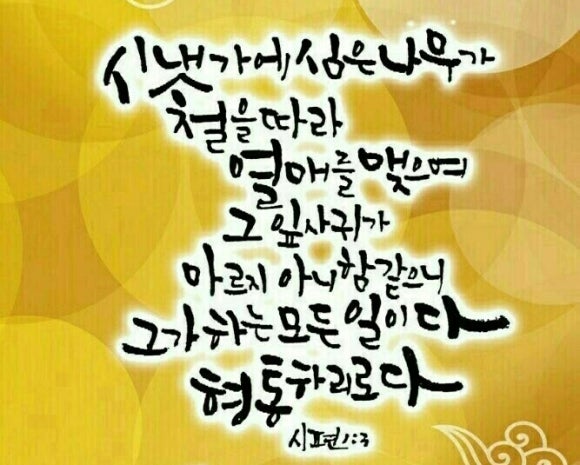 시냇가에 심은 나무가
철을 따라
열매를 맺으며
그 잎사귀가
마르지 아니함 같으니
그가 하는 모든 일이 다
형통하리로다
시편 1:3